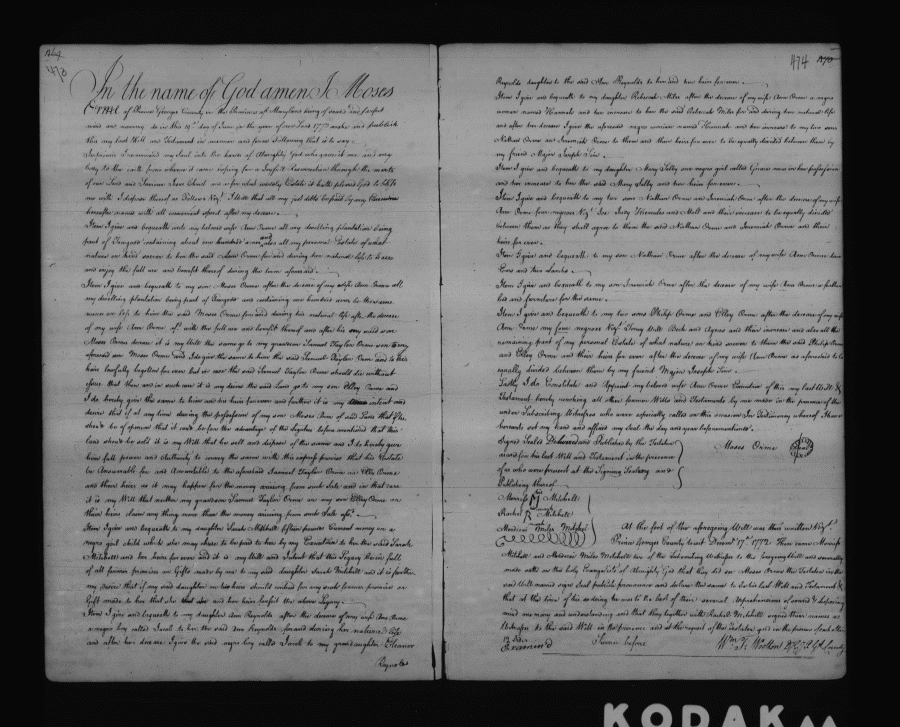 473
In the name of God amen I Moses
Orme of Prince Georges County in the Province of Maryland being of sound and perfect
mind and memory do this 19th day of June in the year of our Lord 1772 make and publish
this my last Will and Testament in manner and form following that is to say
Imprimis I recommend my Soul into the hands of Almighty God who gave it me and my
body to the earth from whence it came hoping for a Joyfull Resurrection through the merits
of our Lord and Saviour Jesus Christ and as for what worldly Estate it hath pleased God to bless
me with I dispose thereof as follows Viz I will that all my just debts be paid by my Executrix
hereafter named with all convenient speed after my decease
Item I give and bequeath unto my beloved wife Ann Orme all my dwelling plantation being
part of containing about one hundred acres and also all my personal Estate of what
nature or kind soever to her the said Ann Orme for and during her natural life to use
and enjoy the full use and benefit thereof during the term aforesaid
Item I give and bequeath to my son Moses Orme after the decease of my wife Ann Orme all
my dwelling plantation being part of and containing one hundred acres to the same
more or less to him the said Moses Orme for and during his natural life after the decease
of my wife Ann Orme with the full use and benefit thereof and after his my said son
Moses Orme decease it is my Will the same go to my grandson Samuel Taylor Orme son to my
aforesaid son Moses Orme and I do give the same to him the said Samuel Taylor Orme and to his
heirs lawfully begotten for ever but in case the said Samuel Taylor Orme should die without
issue that then and in such case it is my desire the said Land go to my son Elly Orme and
I do hereby give the same to him and his heirs for ever and further it is my intent and
desire that if at any time during the possession of my son Moses Orme of said Lands that if he
should be of opinion that it would be for the advantage of the Legatee before mentioned that this
land should be sold it is my Will that he sell and dispose of the same and I do hereby give
him full power and Authority to convey the same with this express proviso that his Estate
be Answerable for and Accountable to the aforesaid Samuel Taylor Orme or Elly Orme
and their heirs as it may happen for the money arising from such sale and in that case
it is my Will that neither my grandson Samuel Taylor Orme or my son Elly Orme or
their heirs claim any thing more than the money arising from such Sale
Item I give and bequeath to my daughter Sarah Mitchell fifteen pounds Current money or a
negro girl child which she may chuse to be paid to her by my Executrix to her the said Sarah
Mitchell and her heirs for ever and it is my Will and Intent that this Legacy is in full
of all former promises or Gifts made by me to my said daughter Sarah Mitchell and it is further
my desire that if my said daughter or her heirs should contend for any such former promises or
Gift made to her that she and her heirs forfeit the above Legacy
Item I give and bequeath to my daughter Ann Reynolds after the decease of my wife Ann Orme
a negro boy called Jacob to her the said Ann Reynolds for and during her natural life
and after her decease I give the said negro boy called Jacob to my granddaughter Eleanor
Reynolds
474
Reynolds daughter to the said Ann Reynolds to her and her heirs for ever
Item I give and bequeath to my daughter Rebeccah Miles after the decease of my wife Ann Orme a negro
woman named Hannah and her increase to her the said Rebeccah Miles for and during her natural life
and after her decease I give the aforesaid negro woman named Hannah and her increase to my two sons
Nathan Orme and Jeremiah Orme to them and their heirs for ever to be equally divided between them by
my friend Major Joseph Sim
Item I give and bequeath to my daughter Mary Selby one negro girl called now in her possession
and her increase to her the said Mary Selby and her heirs for ever
Item I give and bequeath to my two sons Nathan Orme and Jeremiah Orme after the decease of my wife
Ann Orme four negroes Viz Joe Judy Hercules and Moll and their increase to be equally divided
between them as they shall agree to them the said Nathan Orme and Jeremiah Orme and their
heirs for ever
Item I give and bequeath to my son Nathan Orme after the decease of my wife Ann Orme two
Cows and two Lambs
Item I give and bequeath to my son Jeremiah Orme after the decease of my wife Ann Orme a feather
bed and furniture for the same
Item I give and bequeath to my two sons Philip Orme and Elly Orme after the decease of my wife
Ann Orme my four negroes Viz Tomy Will Beck and Agnes and their increase and also all the
remaining part of my personal Estate of what nature or kind soever to them the said Philip Orme
and Elly Orme and their heirs for ever after the decease of my wife Ann Orme as aforesaid to be
equally divided between them by my friend Major Joseph Sim
Lastly I do Constitute and Appoint my beloved wife Ann Orme Executrix of this my last Will &
Testament hereby revoking all other former Wills and Testaments by me made in the presence of the
under Subscribing Witnesses who were especially called on this occasion In Testimony whereof I have
hereunto set my hand and affixed my seal the day and year before mentioned
Signed Sealed Delivered and Published by the Testator
as and for his last Will and Testament in the presence
of us who were present at the Signing Sealing and
Publishing thereof
Moses Orme
Mitchell
Rachel Mitchell
Mordecai Miles Mitchell
At the foot of the aforegoing Will was thus written Viz
Prince Georges County to wit December 17th 1772 Then came
Mitchell and Mordecai Miles Mitchell two of the Subscribing Witnesses to the foregoing Will and severally
made oath on the holy Evangelists of Almighty God that they did see Moses Orme the Testator in the
said Will named sign seal publish pronounce and declare the same to be his last Will and Testament &
that at the time of his so doing he was to the best of their several Apprehensions of sound & disposing
mind memory and understanding and that they together with Rachel Mitchell signed their names as
Witnesses to the said Will in the presence and at the request of the Testator and in the presence of each other
Examined
Sworn before
Wm T. Wootton
KODAK